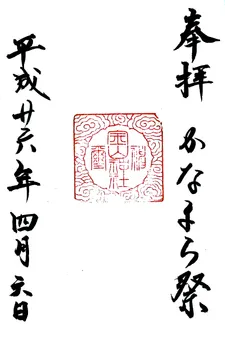 奉拝 かなまら祭
平成廿六年四月六日